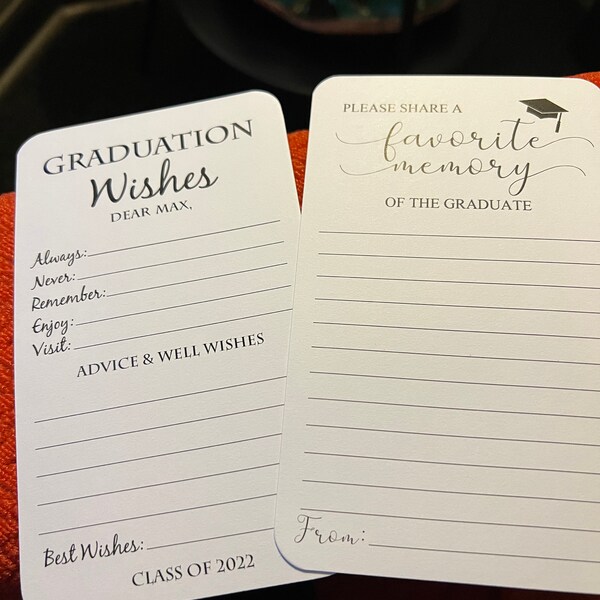 GRADUATION
Wishes
DEAR MAX,
Always:
Never:
Remember:
Enjoy:
Visit:
ADVICE & WELL WISHES
Best Wishes:
CLASS OF 2022
PLEASE SHARE A
favorite
memory
OF THE GRADUATE
From: